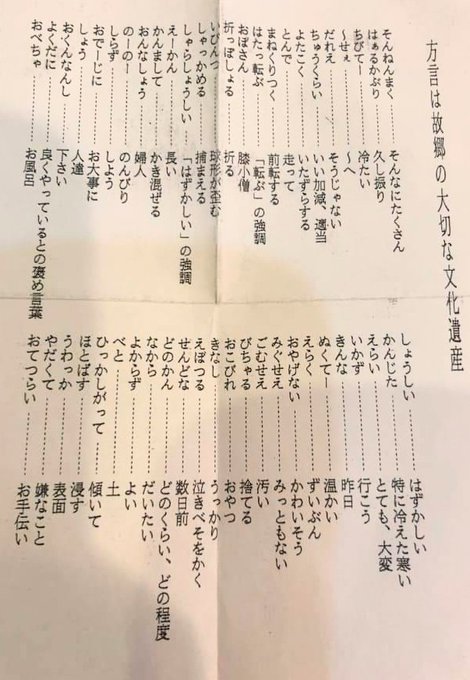 方言は故郷の大切な文化遺産
そんねんまく……………そんなにたくさん
はぁるかぶり……………久し振り
ちびてー……………冷たい
～せぇ……………～へ
だれえ……………そうじゃない
ちゅうくらい……………いい加減、適当
よたこく……………いたずらする
とんで……………走って
まねくりつく……………前転する
はたっ転ぶ……………「転ぶ」の強調
おぼさん……………膝小僧
折っぽしょる……………折る
いびんつ……………球形が歪む
しゃっかめる……………捕まえる
しゃらしょうしい……………「はずかしい」の強調
えーかん……………長い
かんまして……………かき混ぜる
おんなしょう……………婦人
のーのー……………のんびり
しらず……………しよう
おでーじに……………お大事に
しょう……………人達
おくんなんし……………下さい
よくだに……………良くやっているとの褒め言葉
おべちゃ……………お風呂
しょうしい……………はずかしい
かんじた……………特に冷えた寒い
えらい……………とても、大変
いかず……………行こう
きんな……………昨日
ぬくてー……………温かい
えらく……………ずいぶん
おやげない……………かわいそう
みぐせえ……………みっともない
ごむせえ……………汚い
びちゃる……………捨てる
おこびれ……………おやつ
きなし……………うっかり
えぼつる……………泣きべそをかく
せんどな……………数日前
どのかん……………どのくらい、どの程度
なから……………だいたい
よからず……………よい
べと……………土
ひっかしがって……………傾いて
ほとばす……………浸す
うわっか……………表面
やだくて……………嫌なこと
おてつらい……………お手伝い